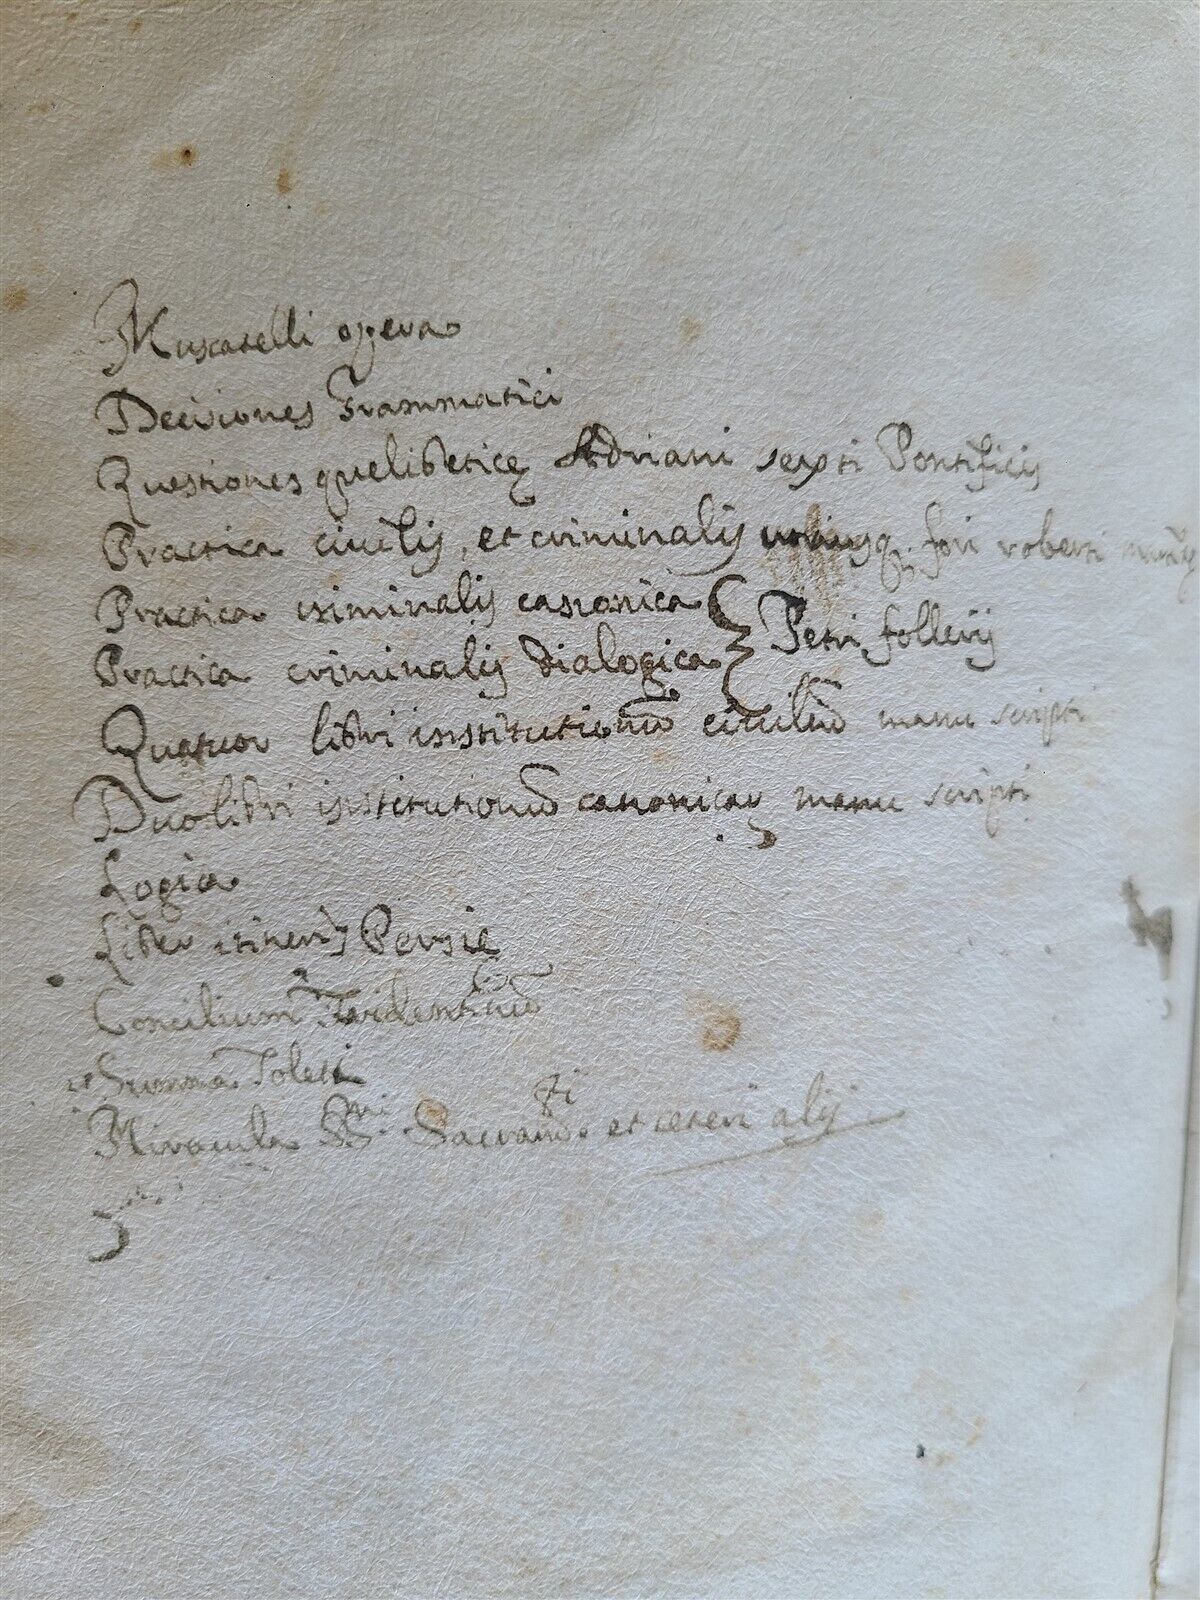 Muscatelli opera
Decisiones Grammatici
Questiones quelibetice Adriani sexti Pontificis
Practica civilis, et criminalis utriusq. fori roberti
Practica criminalis canonica
Practica criminalis dialogica } Petri follerij
Quatuor libri institutionũ civiliũ manu scripti
Duo libri institutionũ canonicar manu scripti
Logica
Liber itineris Persie
Concilium Tridentinũ
Summa Toleti
Miracula SSmi. Sacramti et ceteri alij